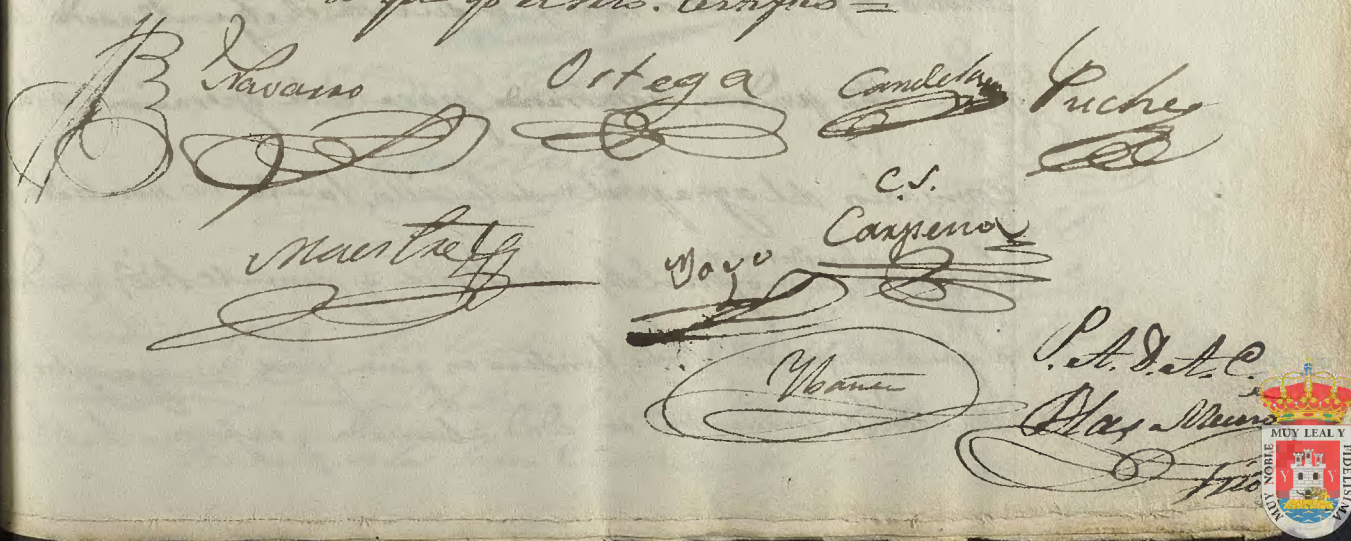 Certifico =
Navarro Ortega Candela Puche
C. S.
Maestre Carpena
Ybañez
P. A. D. A. C.
Blas
Srio
MUY NOBLE MUY LEAL Y FIDELISIMA
Y Y